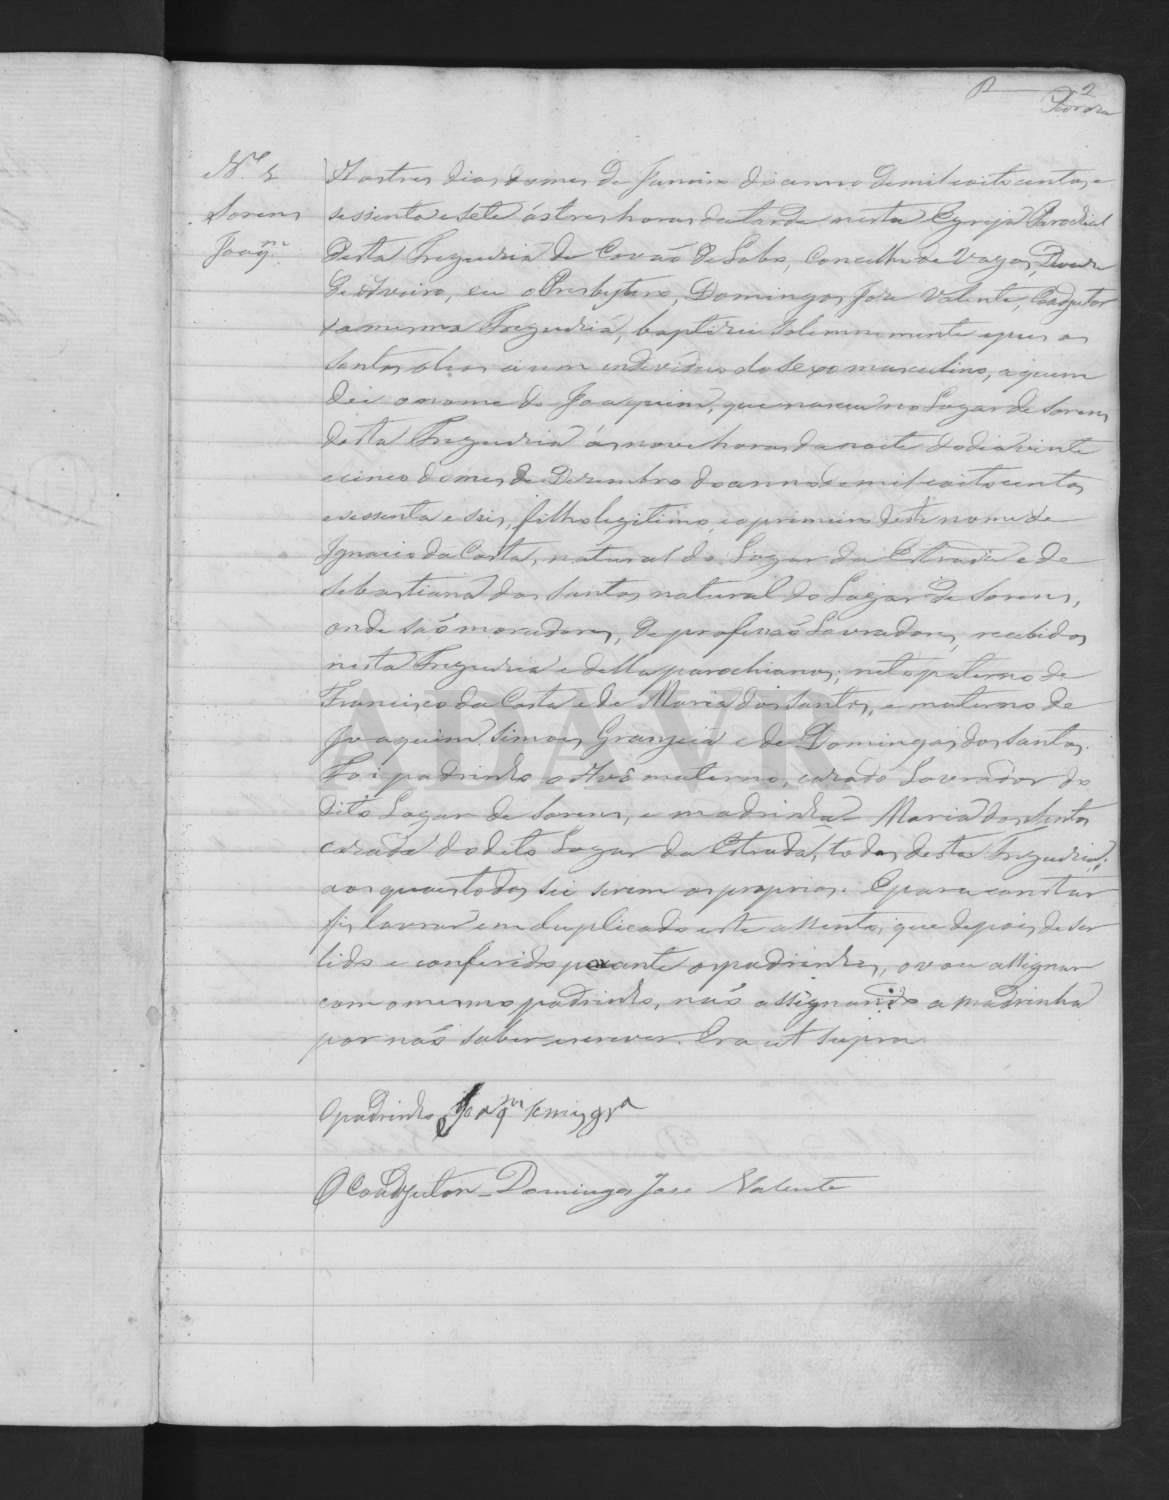 2
N.º 1
Sorens
Joaq.m
Aos tres dias do mes de Janeiro do anno de mil oito centos e
sessenta e sete ás tres horas da tarde nesta Egreja Parochial
desta Freguezia de Covaõ de Lobo, Concelho de Vagos,
de Aveiro, eu o Presbytero, Domingos José Valente, Coadjutor
da mesma Freguezia, baptizei solemnemente e puz os
santos oleos a um individuo do sexo masculino, a quem
dei o nome de Joaquim, que nasceu no Logar de Sorens
desta Freguezia ás nove horas da noite do dia vinte
e cinco do mes de Dezembro do anno de mil e oito centos
e sessenta e seis, filho legitimo, e o primeiro deste nome de
Ignacio da Costa, natural do Logar da Estrada e de
Sebastiana dos Santos natural do Logar de Sorens,
onde saõ moradores, de profissaõ Lavradores, recebidos
nesta Freguezia e della parochianos; neto paterno de
Francisco da Costa e de Maria dos Santos, e materno de
Joaquim Simoes Grangeia e de Domingas dos Santos.
Foi padrinho o Avô materno, cazado Lavrador do
dito Logar de Sorens, e madrinha Maria dos Santos
cazada do dito Logar da Estrada, todos desta Freguezia;
aos quaes todos sei serem os proprios. E para constar
fiz lavrar em duplicado este assento, que depois de ser
lido e conferido perante os padrinhos, o vou assignar
com o mesmo padrinho, naõ assignando a madrinha
por naõ saber escrever. Era ut supra
O padrinho Joaq.m Simis gr.a
O Coadjutor - Domingos Jose Valente
ADAVR